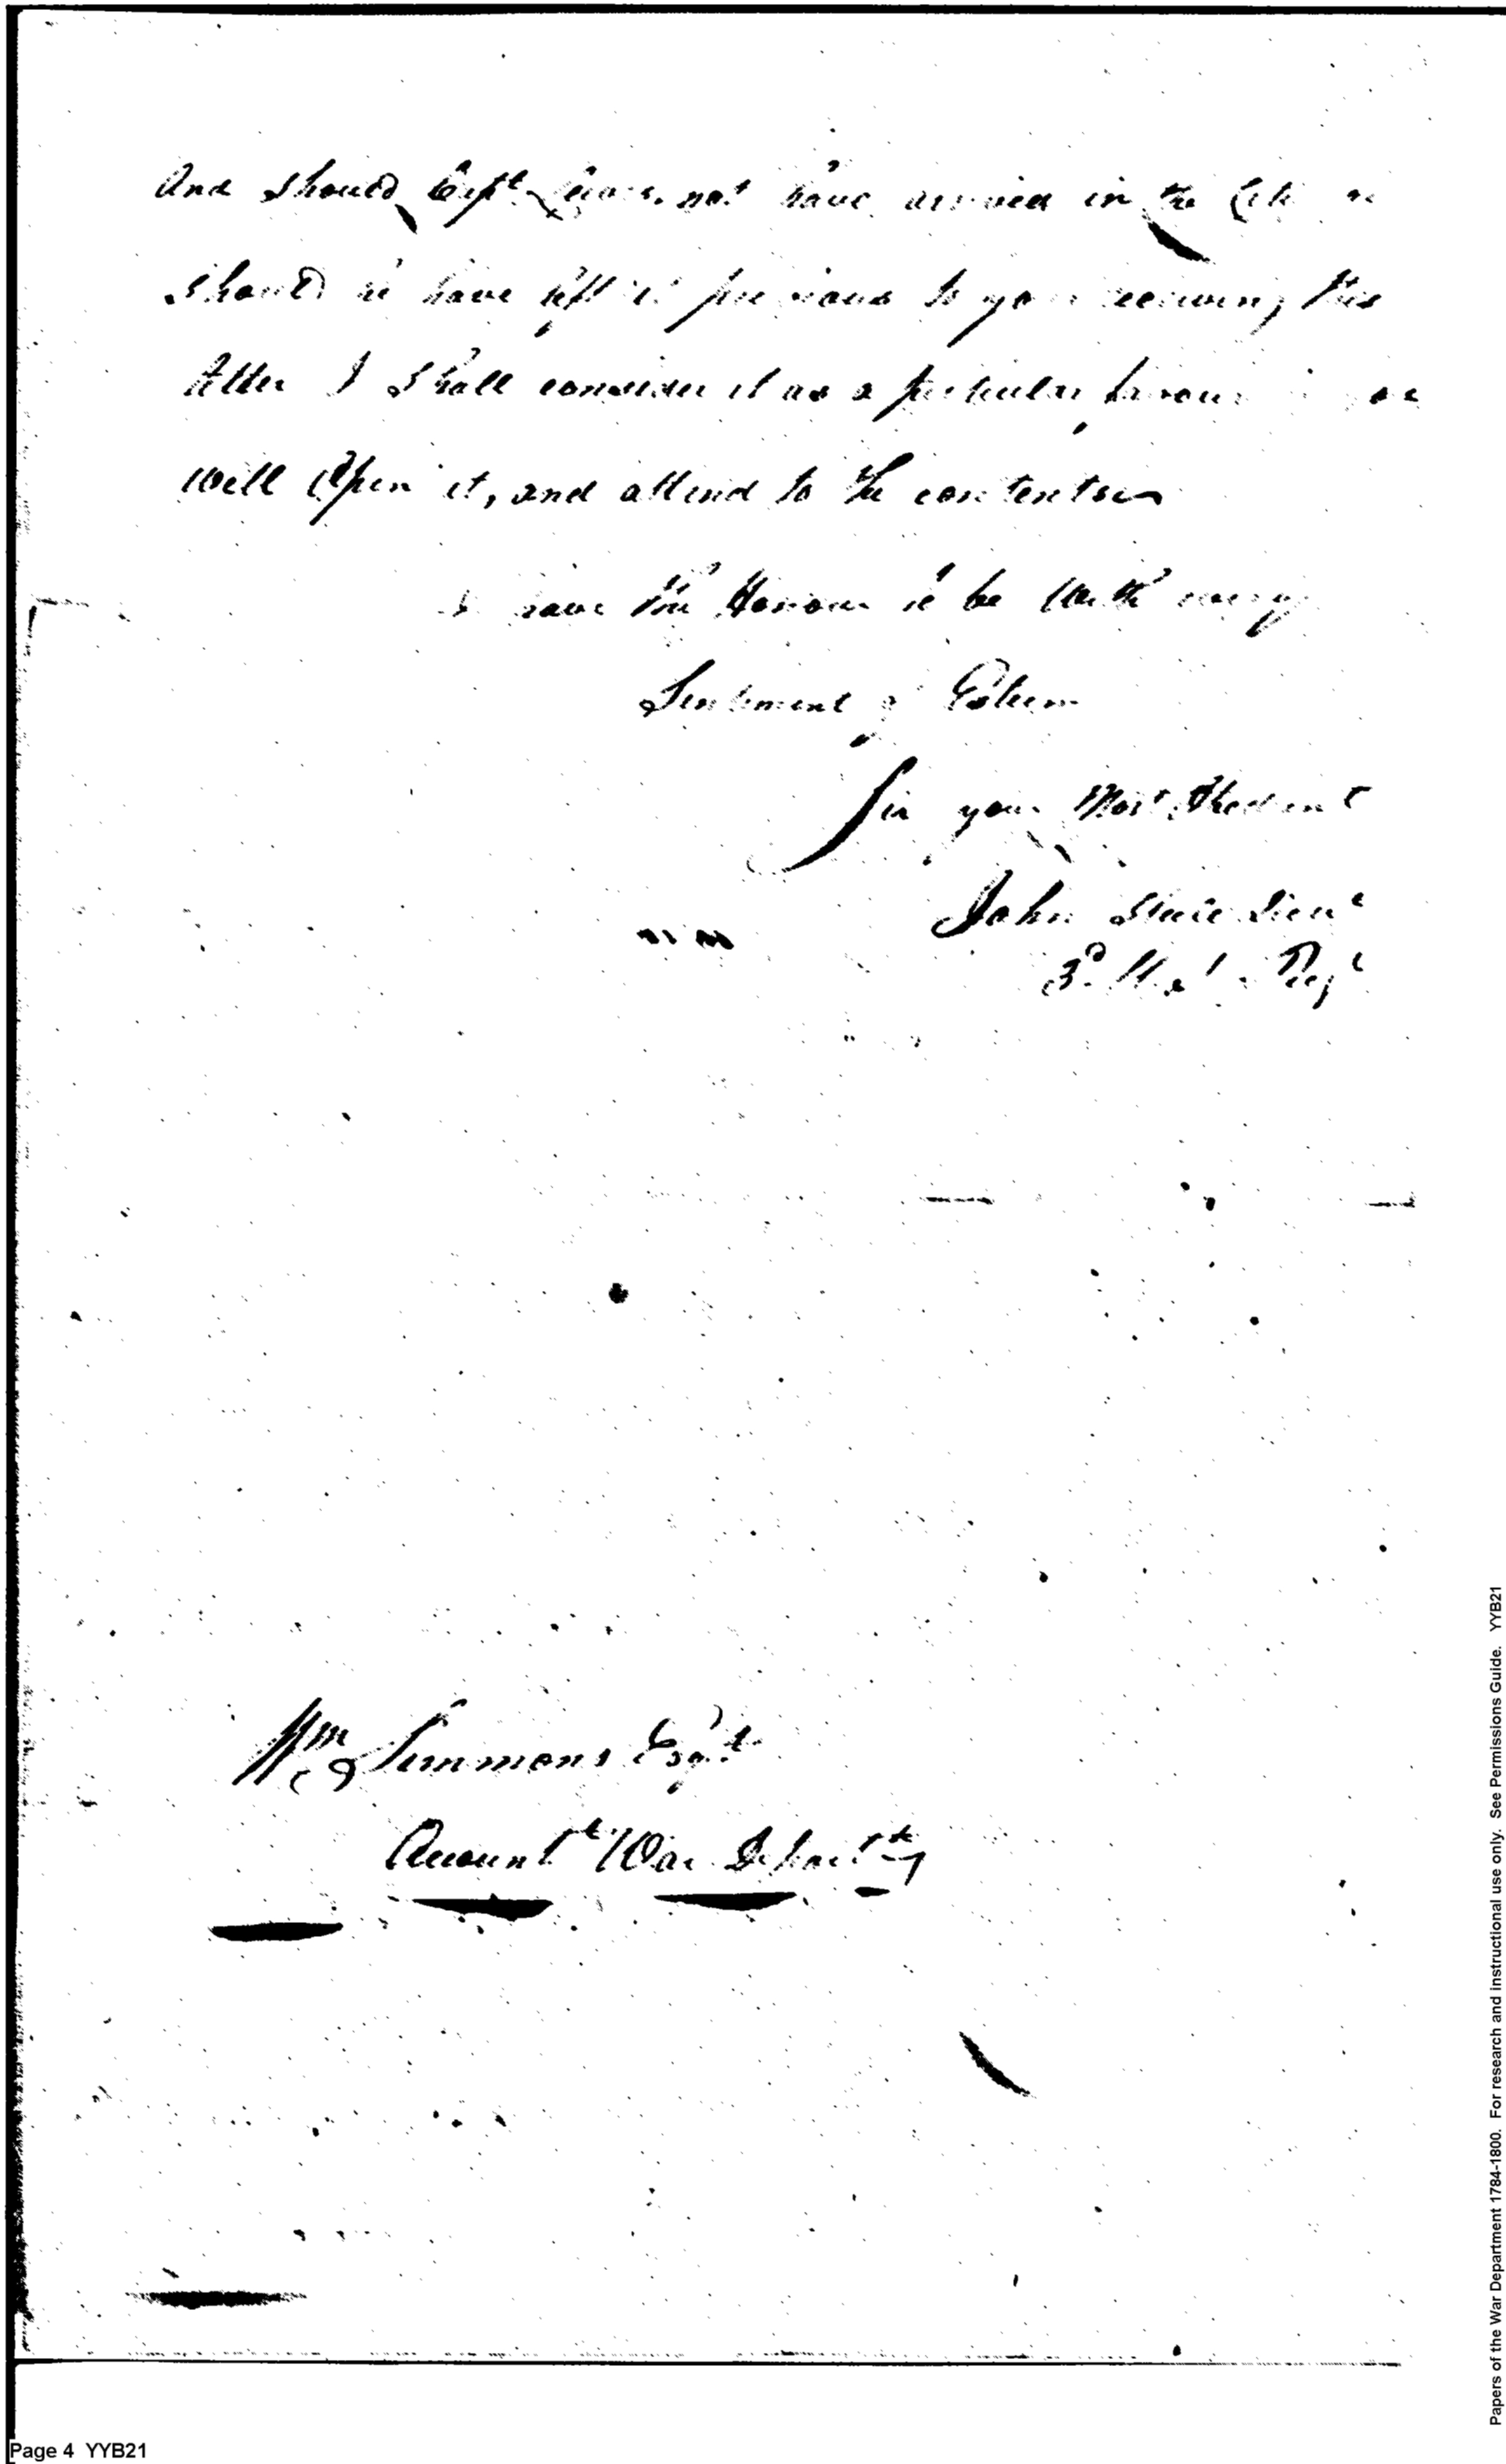 And Should Capt. Lewis not have arrived in the City or
Should he have left it previous to your receiving this
letter I Shall consider it as a perticular favour if you
will Open it, and attend to the contents
I have the Honour to be With every
Sentiment of Esteem
Sir your Most Obedient
John Steele Lieut
3d Regt
Wm Simmons Esqr
Accountt War Departt
Page 4 YYB21
Papers of the War Department 1784-1800. For research and instructional use only. See Permissions Guide. YYB21